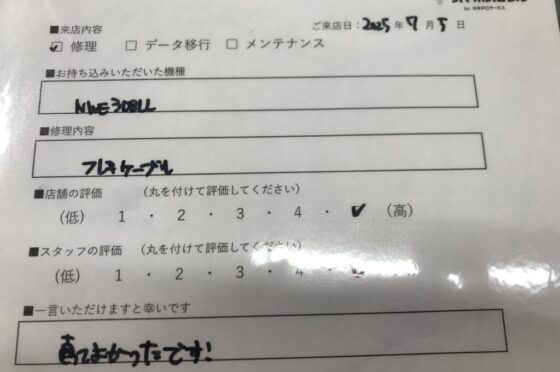 by 日本PCサービス
■来店内容 ご来店日：2025年7月5日
☑ 修理 □ データ移行 □ メンテナンス
■お持ち込みいただいた機種
■修理内容
フレキケーブル
■店舗の評価 （丸を付けて評価してください）
（低） 1 ・ 2 ・ 3 ・ 4 ・ ✓ （高）
■スタッフの評価 （丸を付けて評価してください）
（低） 1 ・ 2 ・ 3 ・ 4 ・
■一言いただけますと幸いです
直ってよかったです！